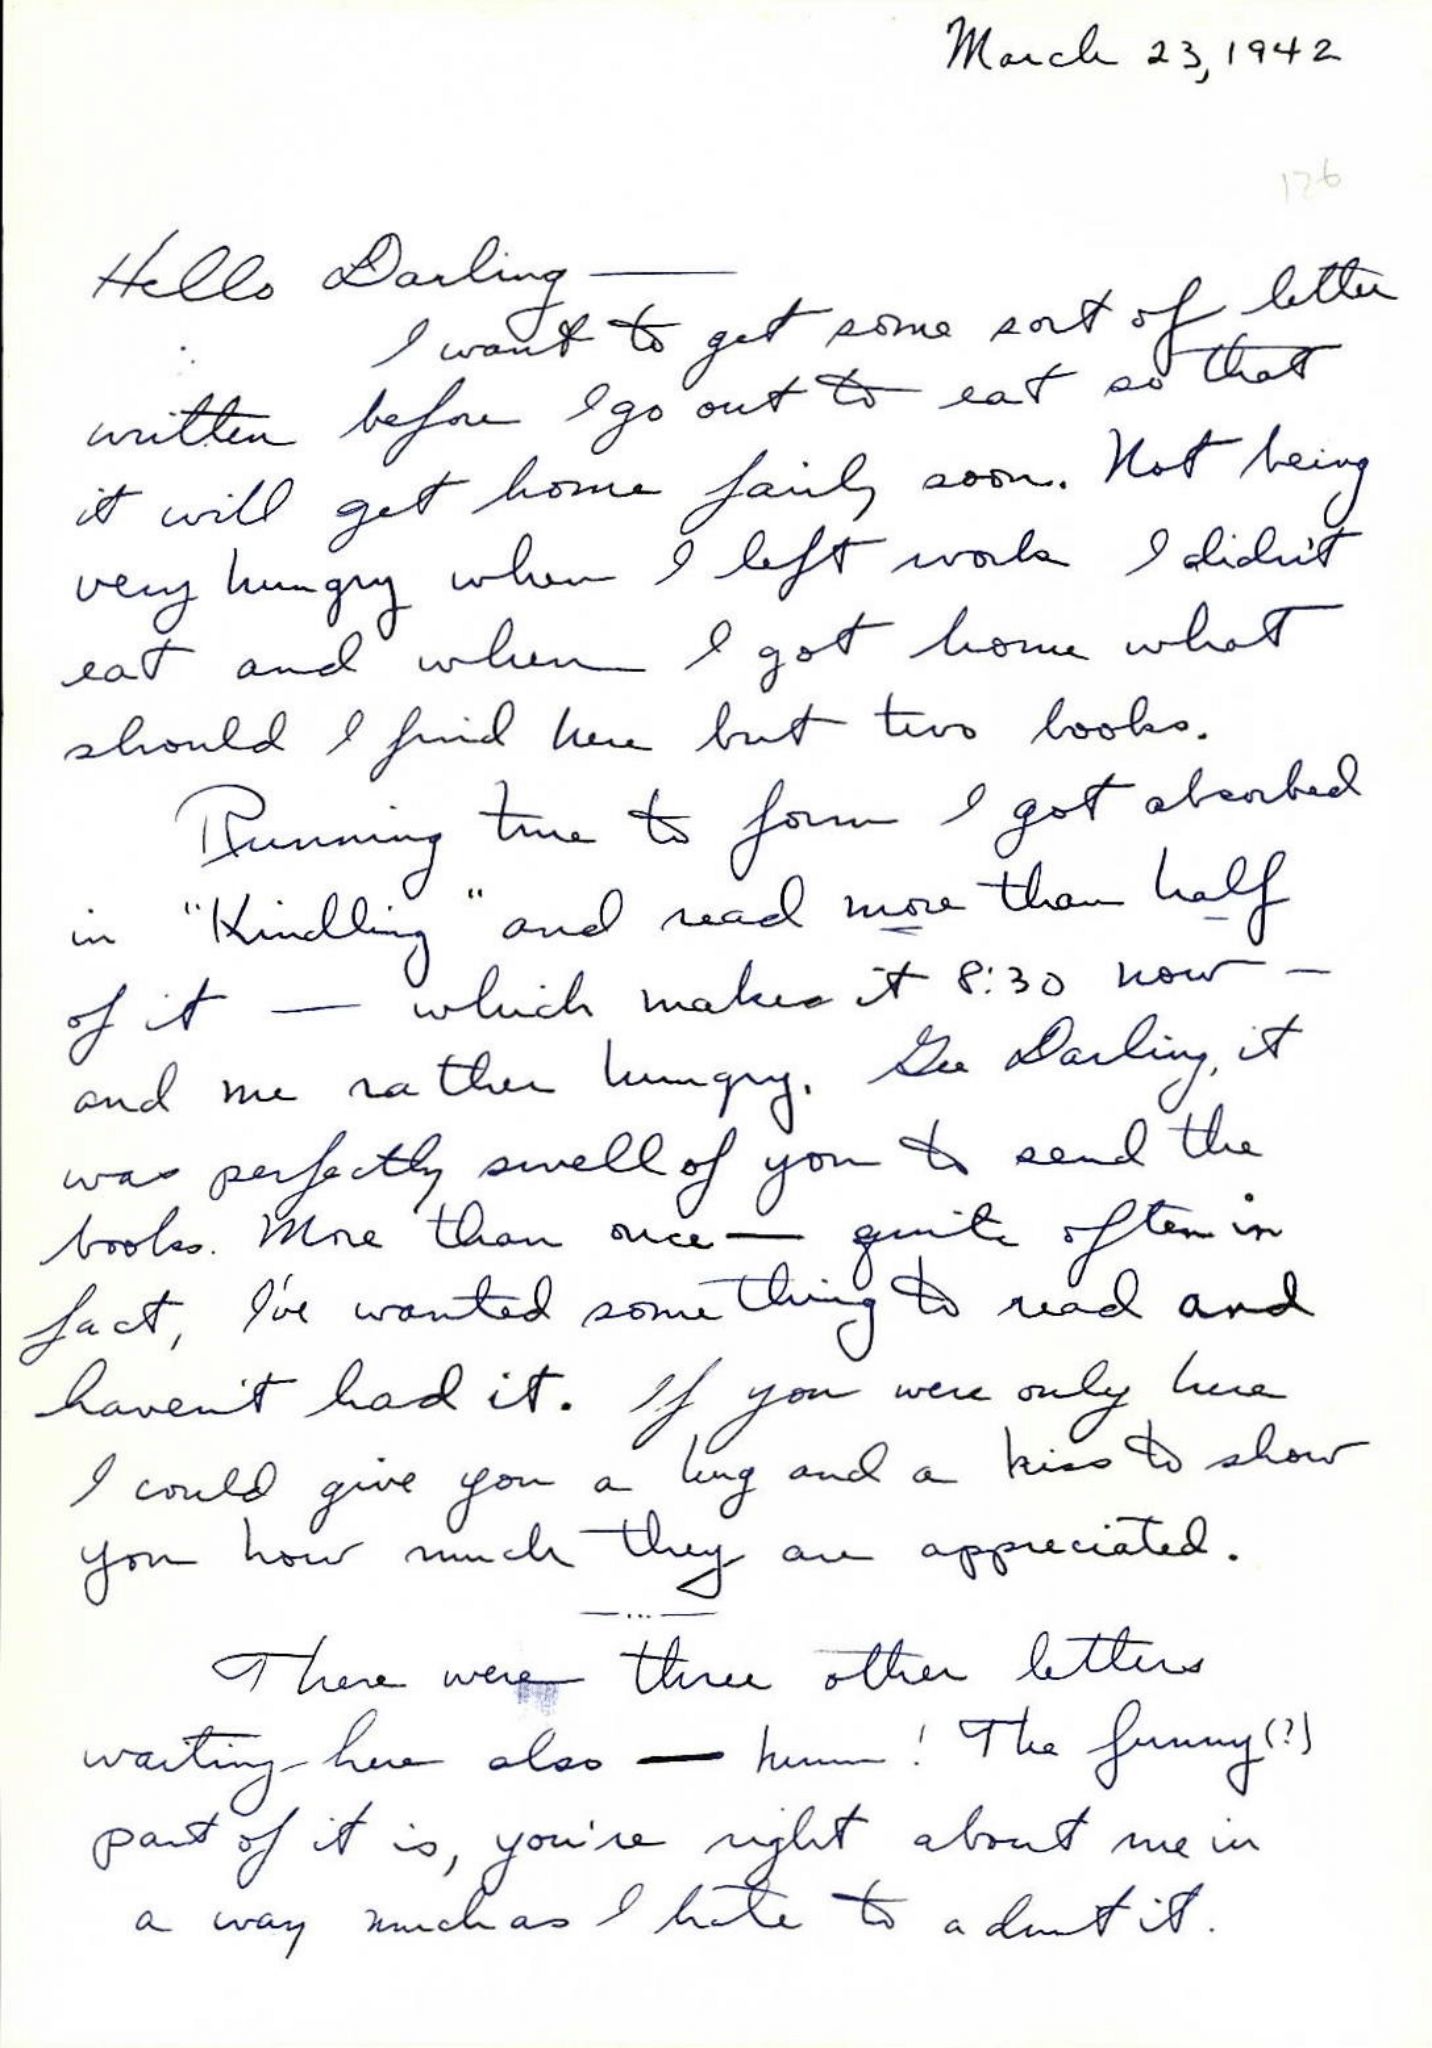 March 23, 1942
126
Hello Darling —
I want to get some sort of letter
written before I go out to eat so that
it will get home fairly soon. Not being
very hungry when I left work I didn't
eat and when I got home what
should I find here but two books.
Running true to form I got absorbed
in "Kindling" and read more than half
of it — which makes it 8:30 now —
and me rather hungry. Gee Darling, it
was perfectly swell of you to send the
books. More than once — quite often in
fact, I've wanted something to read and
haven't had it. If you were only here
I could give you a hug and a kiss to show
you how much they are appreciated.
—...—
There were three other letters
waiting here also — hmm! The funny(?)
part of it is, you're right about me in
a way much as I hate to admit it.